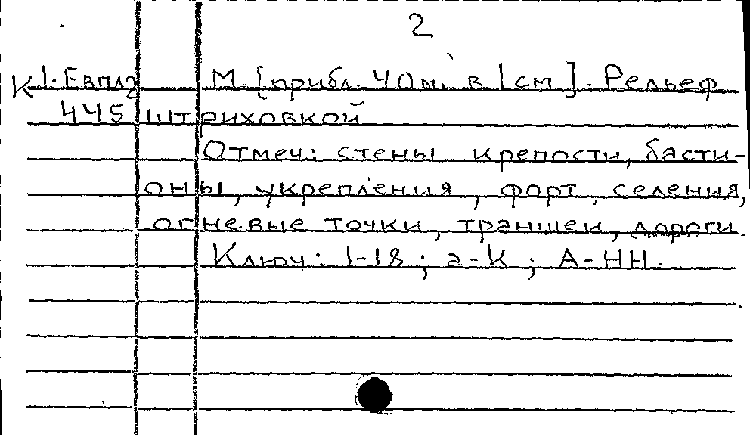 2
К 1-Евпл2 М. [прибл. 40м. в 1см]. Рельеф
445 штриховкой
Отмеч: стены крепости, басти-
оны, укрепления, форт, селения,
огневые точки, траншеи, дороги.
Ключ: 1-18; а-К; А-НН.